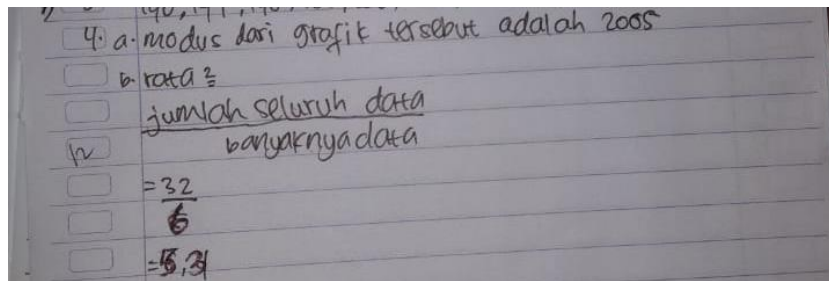 4. a. modus dari grafik tersebut adalah 2005
b. rata²
jumlah seluruh data
banyaknya data
= 32
6
= 5,3